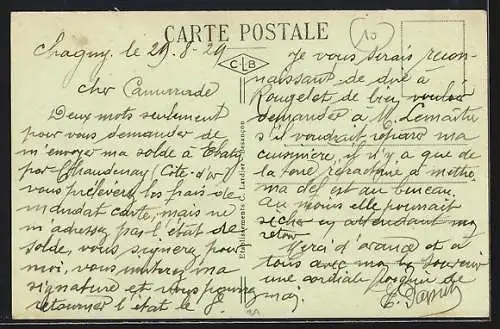 CARTE POSTALE
10
Chagny, le 29-8-29
C L B
Cher Camarade
Deux mots seulement
pour vous demander de
m'envoyer ma solde à
par Chaudenay (Côte-d'or)
vous prélèverez les frais de
mandat carte, mais ne
m'adressez pas l'état de
solde, vous signerez pour
moi, vous imiterez ma
signature et vous pourrez
retourner l'état le
Etablissements C. Lardier, Besançon
Je vous serais recon-
naissant de dire à
Rouget de bien vouloir
demander à M. Lemaître
s'il voudrait réparer ma
cuisinière, il n'y a que de
la terre réfractaire à mettre
ma clef est au bureau.
Au moins elle pourrait
sécher en attendant mon
retour
Merci d'avance et à
tous avec ma
une cordiale poignée de
main